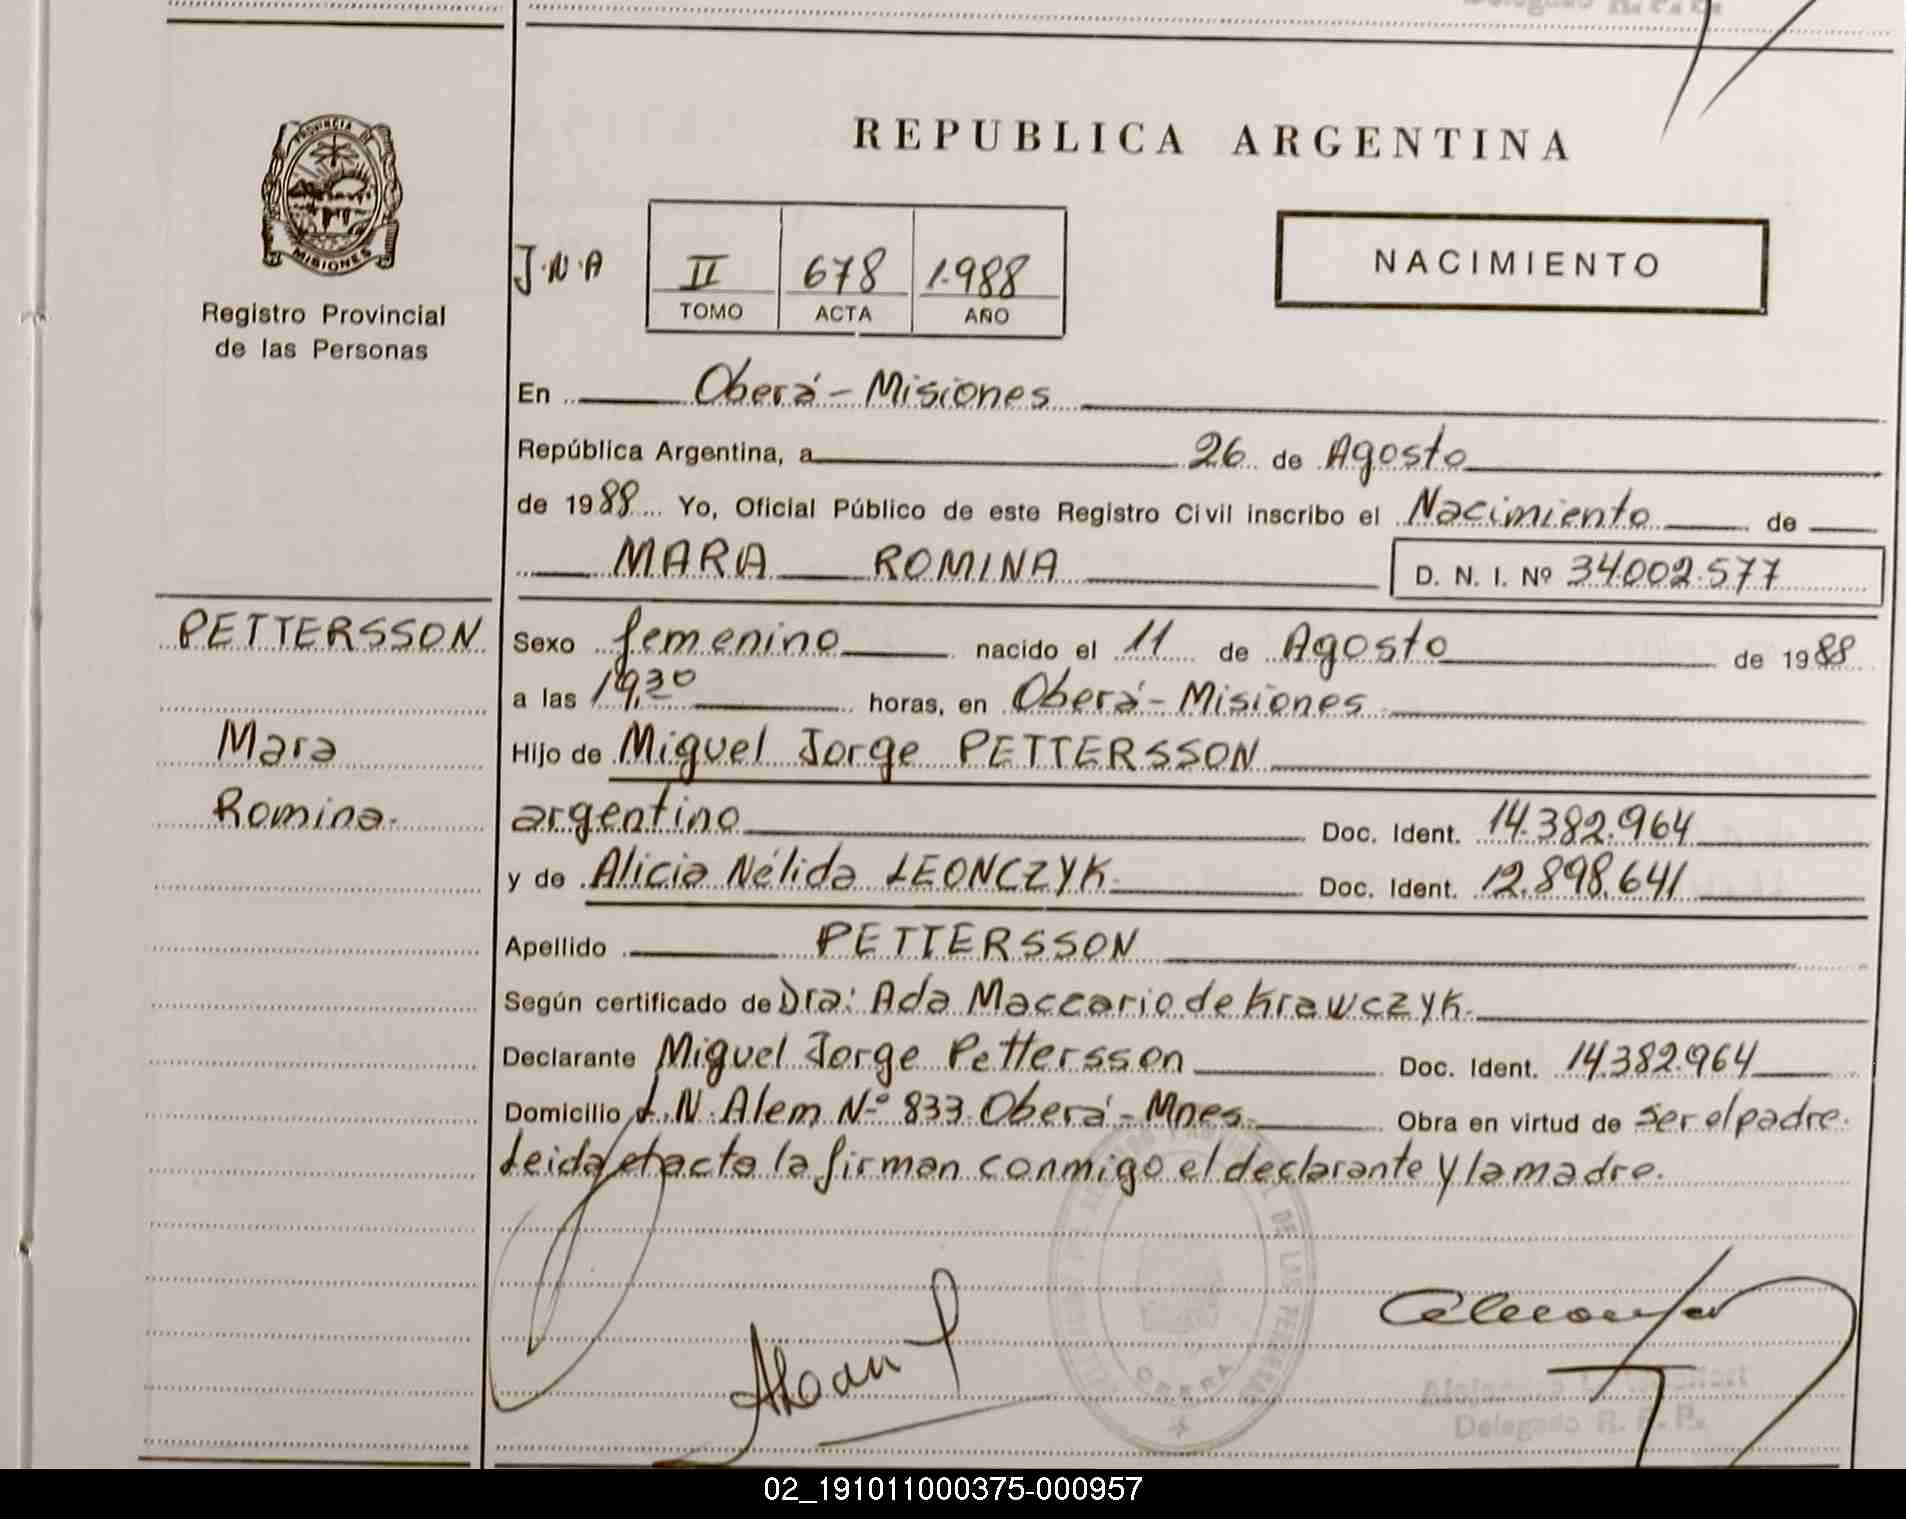 PROVINCIA DE
MISIONES
Registro Provincial
de las Personas
REPUBLICA ARGENTINA
J.N.A
II 678 1.988
TOMO ACTA AÑO
NACIMIENTO
En Oberá - Misiones
República Argentina, a 26 de Agosto
de 1988 Yo, Oficial Público de este Registro Civil inscribo el Nacimiento de
MARA ROMINA D. N. I. Nº 34.002.577
PETTERSSON
Mara
Romina.
Sexo femenino nacido el 11 de Agosto de 1988
a las 19,30 horas, en Oberá - Misiones
Hijo de Miguel Jorge PETTERSSON
argentino Doc. Ident. 14.382.964
y de Alicia Nélida LEONCZYK Doc. Ident. 12.898.641
Apellido PETTERSSON
Según certificado de Dra: Ada Maccario de Krawczyk.
Declarante Miguel Jorge Pettersson Doc. Ident. 14.382.964
Domicilio L.N. Alem Nº 833 Oberá - Mnes. Obra en virtud de ser el padre.
Leida el acta la firman conmigo el declarante y la madre.
DE LAS
Delegado R. P. P.
02_191011000375-000957